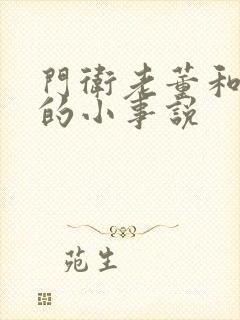 門衛老董和
的小事說
苑生